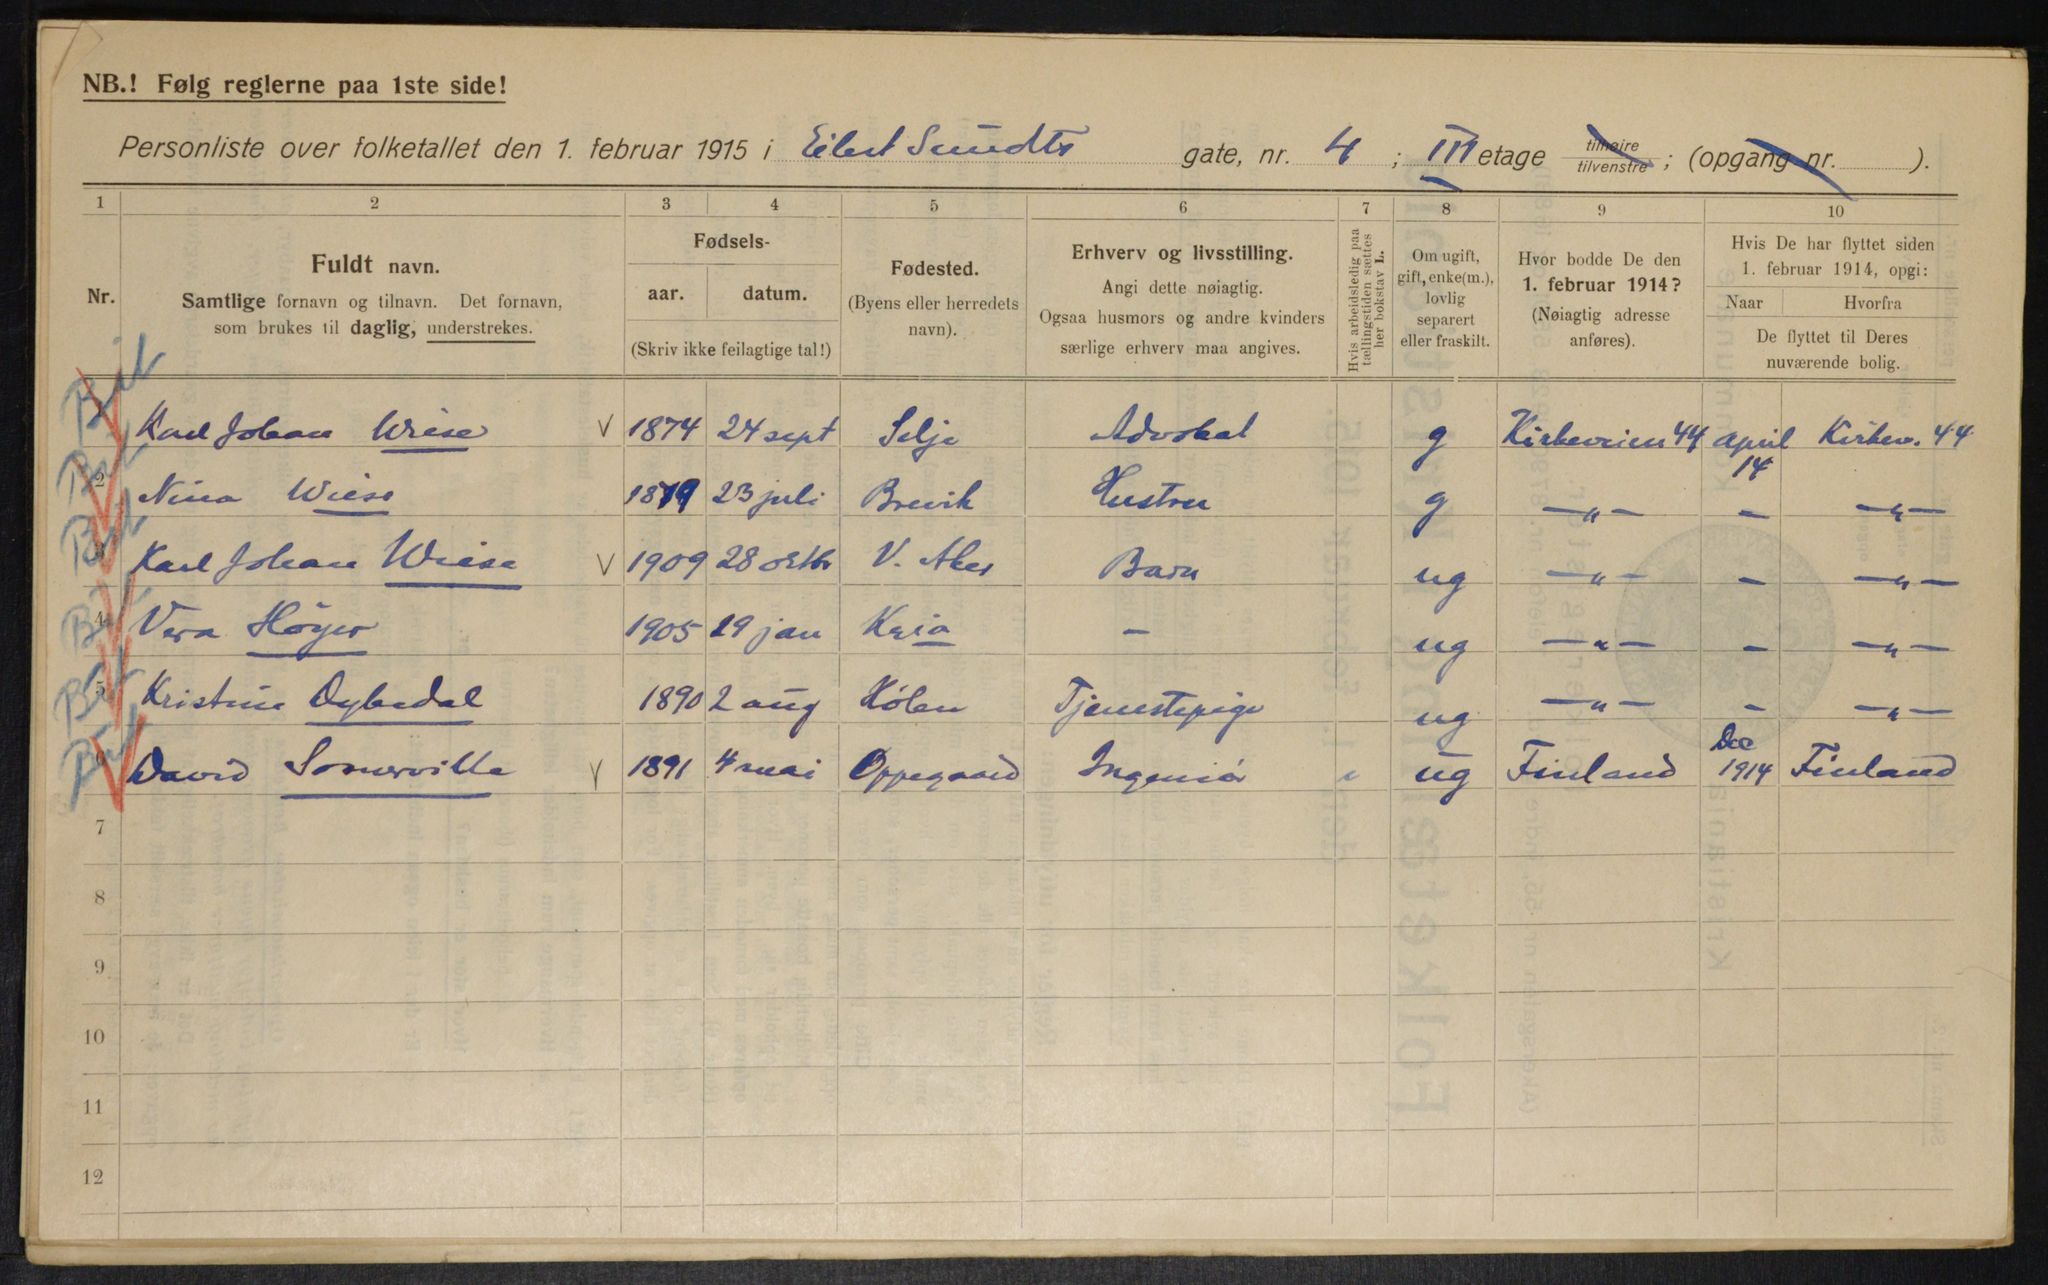 NB.! Følg reglerne paa 1ste side!
Personliste over folketallet den 1. februar 1915 i Eilert Sundts gate, nr. 4 ; III etage tilhøire tilvenstre ; (opgang nr. ).
1 2 3 4 5 6 7 8 9 10
Nr.
Fuldt navn.
Samtlige fornavn og tilnavn. Det fornavn,
som brukes til daglig, understrekes.
Fødsels-
aar. datum.
(Skriv ikke feilagtige tal!)
Fødested.
(Byens eller herredets
navn).
Erhverv og livsstilling.
Angi dette nøiagtig.
Ogsaa husmors og andre kvinders
særlige erhverv maa angives.
Hvis arbeidsledig paa
tællingstiden sættes
her bokstav L.
Om ugift,
gift, enke(m.),
lovlig
separert
eller fraskilt.
Hvor bodde De den
1. februar 1914?
(Nøiagtig adresse
anføres).
Hvis De har flyttet siden
1. februar 1914, opgi:
Naar Hvorfra
De flyttet til Deres
nuværende bolig.
Karl Johan Wiese 1874 24 sept Selje Advokat g Kirkeveien 44 april 14 Kirkev. 44
2 Nina Wiese 1879 23 juli Brevik Hustru g —"— — —"—
3 Karl Johan Wiese 1909 28 oktbr V. Aker Barn ug —"— — —"—
4 Vera Höyer 1905 29 jan Kria — ug —"— — —"—
5 Kristine Dybedal 1890 2 aug Hölen Tjenestepige ug —"— — —"—
6 David Somerville 1891 4 mai Oppegaard Ingeniör ug Finland Dec 1914 Finland
7
8
9
10
11
12